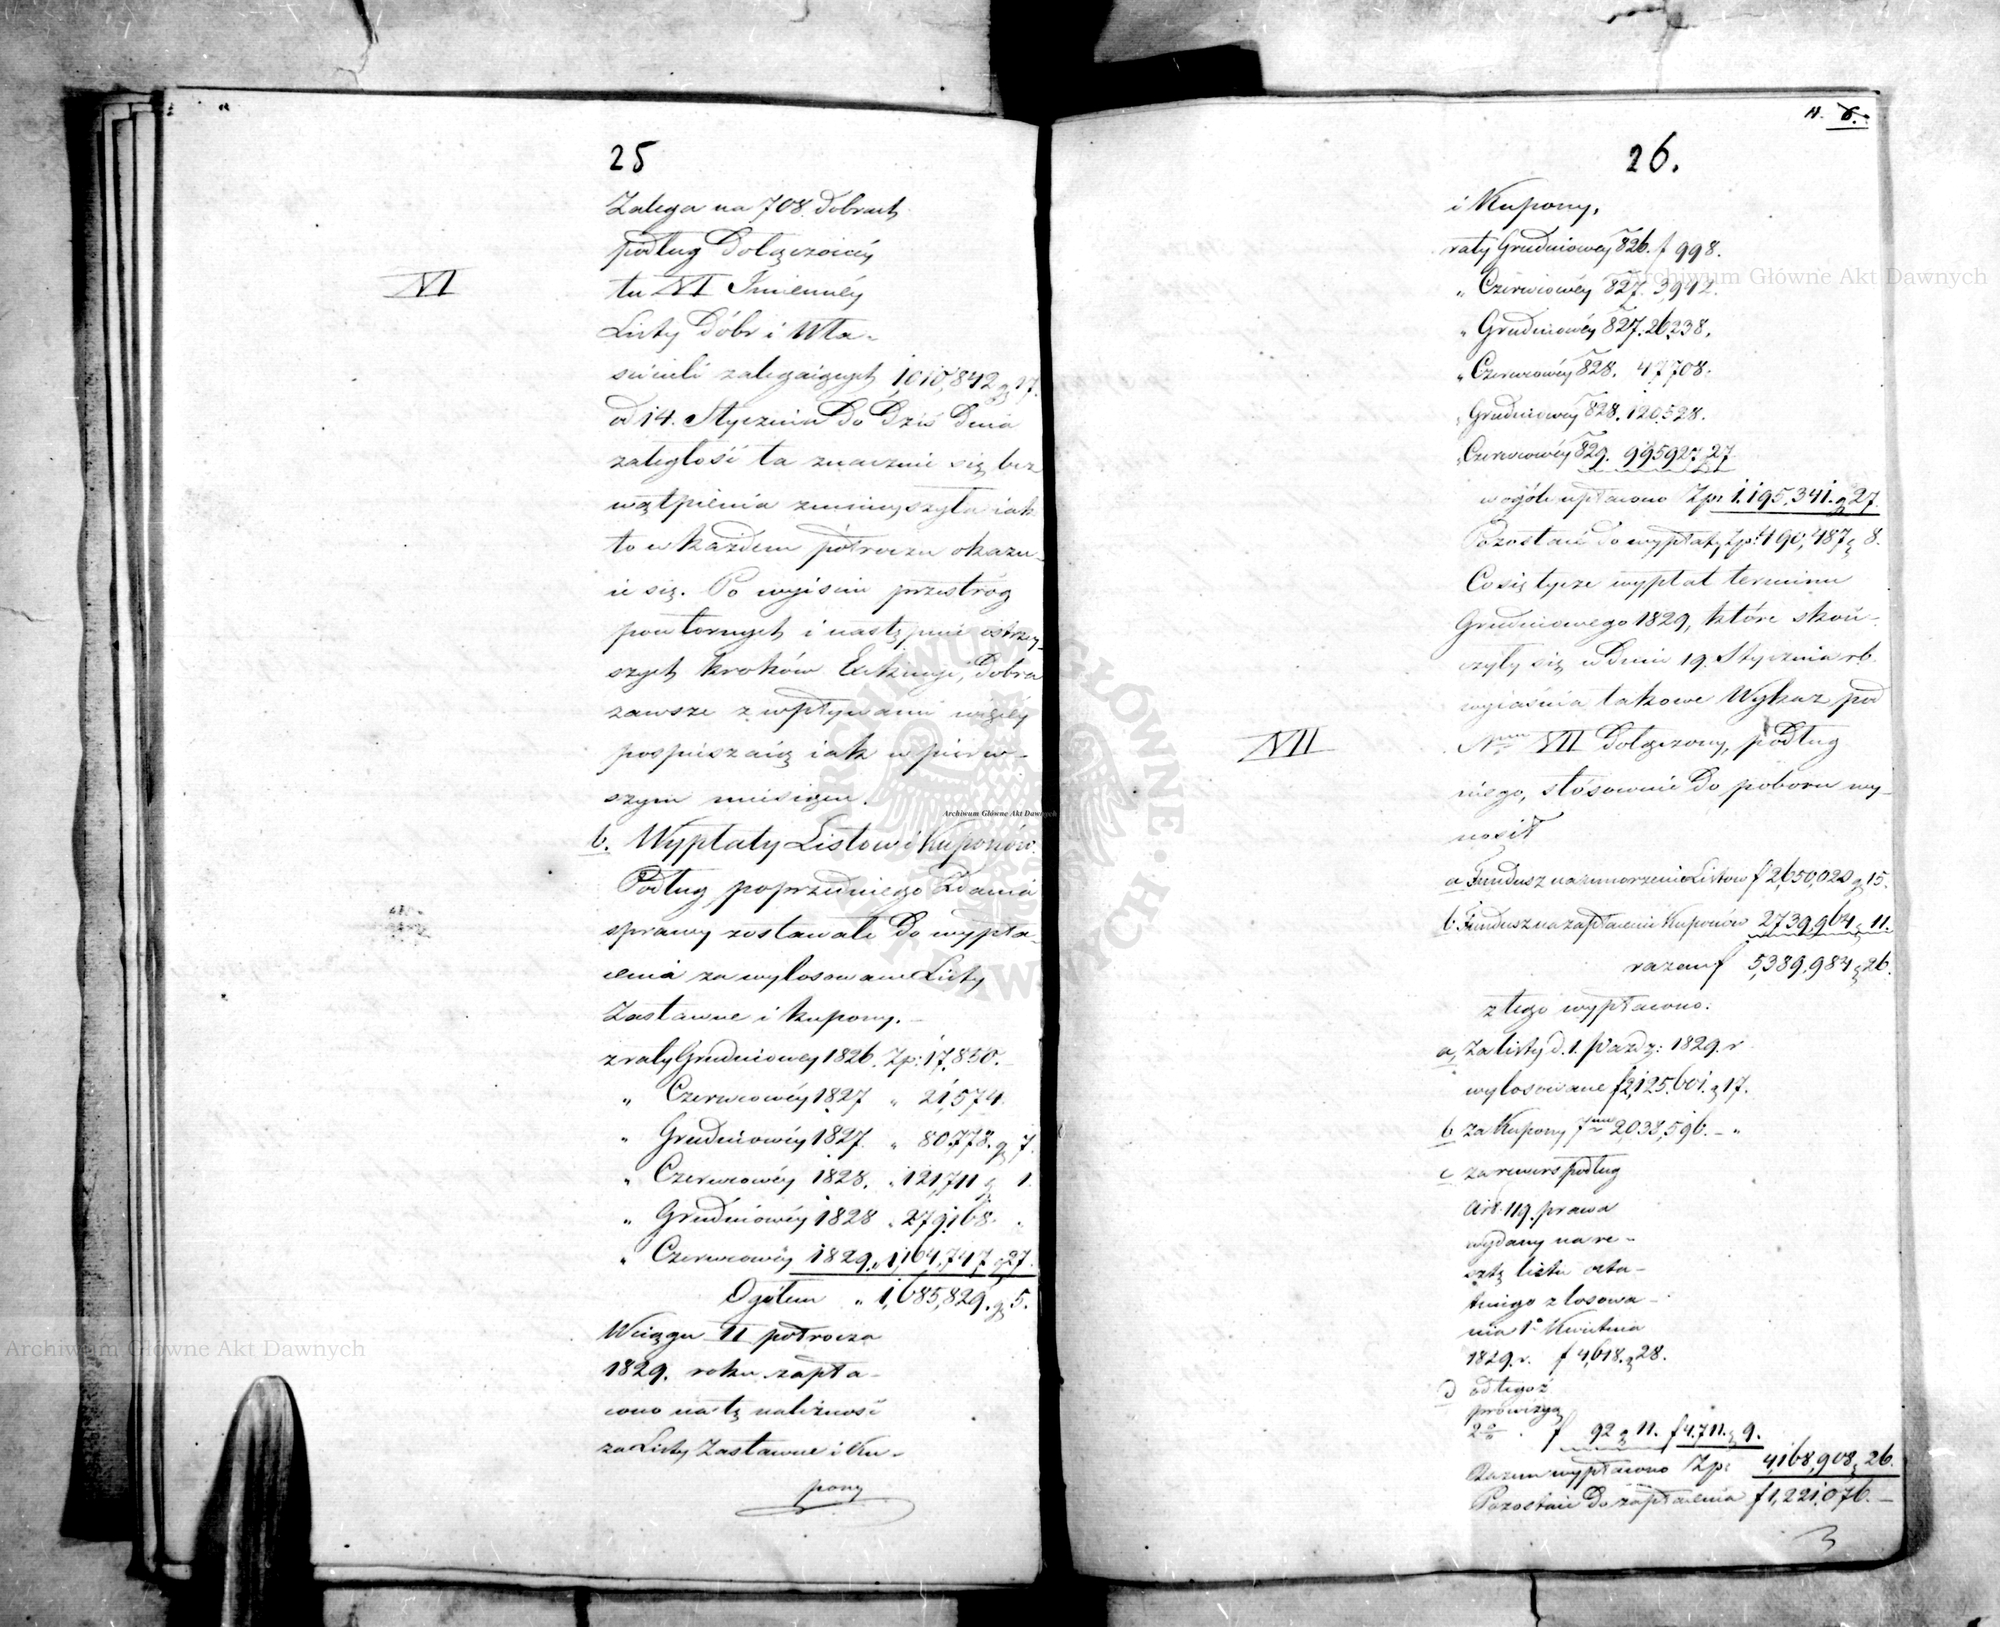 25
Zalega na 708. dobrach
podług dołączonéj
XI
tu XI Imiennéj
Listy Dóbr i Wła-
ścicieli zalegaiących 1,010,842 g 17.
od 14. Stycznia do Dziś Dnia
zaległość ta znacznie się bez
wątpienia zmnieyszyła iak
to w każdem półroczu okazu-
ie się. Po wyjściu przestróg
powtornych i następnie ostrzey-
szych kroków Exekucyi, Dobra
zawsze z wpływami więcéj
pospieszaią iak w pierw-
szym miesiącu.
b. Wypłaty Listów i Kuponów.
Podług poprzedniego zdania
sprawy zostawało do wypła-
cenia za wylosowane Listy
Zastawne i kupony. -
z raty Grudniowéy 1826. Zp: 17,850. -
" Czerwcowéy 1827 " 21,574.
" Grudniowéy 1827. " 80,778. g 7.
" Czerwcowéy 1828. " 121,711 g 1.
" Grudniowéy 1828 " 279,168. "
" Czerwcowéy 1829. " 1,164,747 g 27.
Ogółem " 1,685,829. g 5.
W ciągu II półrocza
1829. roku zapła-
cono na tę należność
za Listy Zastawne i Ku-
pony
26.
i Kupony,
raty Grudniowéy 826. f 998.
" Czerwcowéy 827. 3,942.
" Grudniowéy 827. 26,238.
" Czerwcowéy 828. 47,708.
" Grudniowéy 828. 120,528.
" Czerwcowéy 829. 995,927, 27
w ogóle wpłacono Zp: 1,195,341. g 27.
Pozostaie do wypłaty Zp: 490,487 g 8.
Co się tycze wypłat terminu
Grudniowego 1829, które skoń-
czyły się w dniu 19. Stycznia rb.
wyiaśnia takowe Wykaz pod
XII
Nrem XII dołączony, podług
niego, stósownie do poboru wy-
nosił
a Fundusz na umorzenie Listow f 2,650,020 g 15.
b. Fundusz na zapłacenie Kuponów 2,739,964 g 11.
razem f 5,389,984 g 26.
z tego wypłacono:
a, Za listy d. 1. Paźdz: 1829. r
wylosowane f 2,125,601. g 17.
b za Kupony 7me 2,038,596. - "
c za rewers podług
Art. 119. prawa
wydany na re-
sztę listu osta-
tniego z losowa-
nia 1o Kwietnia
1829. r. f 4,618. g 28.
d od tegoż
prowizya
2% . f 92 g 11. f 4,711. g 9.
Razem wypłacono Zp: 4,168,908 g 26.
Pozostaie do zapłacenia f 1,221,076. -
3
Archiwum Główne Akt Dawnych
Archiwum Główne Akt Dawnych
Archiwum Główne Akt Dawnych
ARCHIWUM GŁÓWNE AKT DAWNYCH